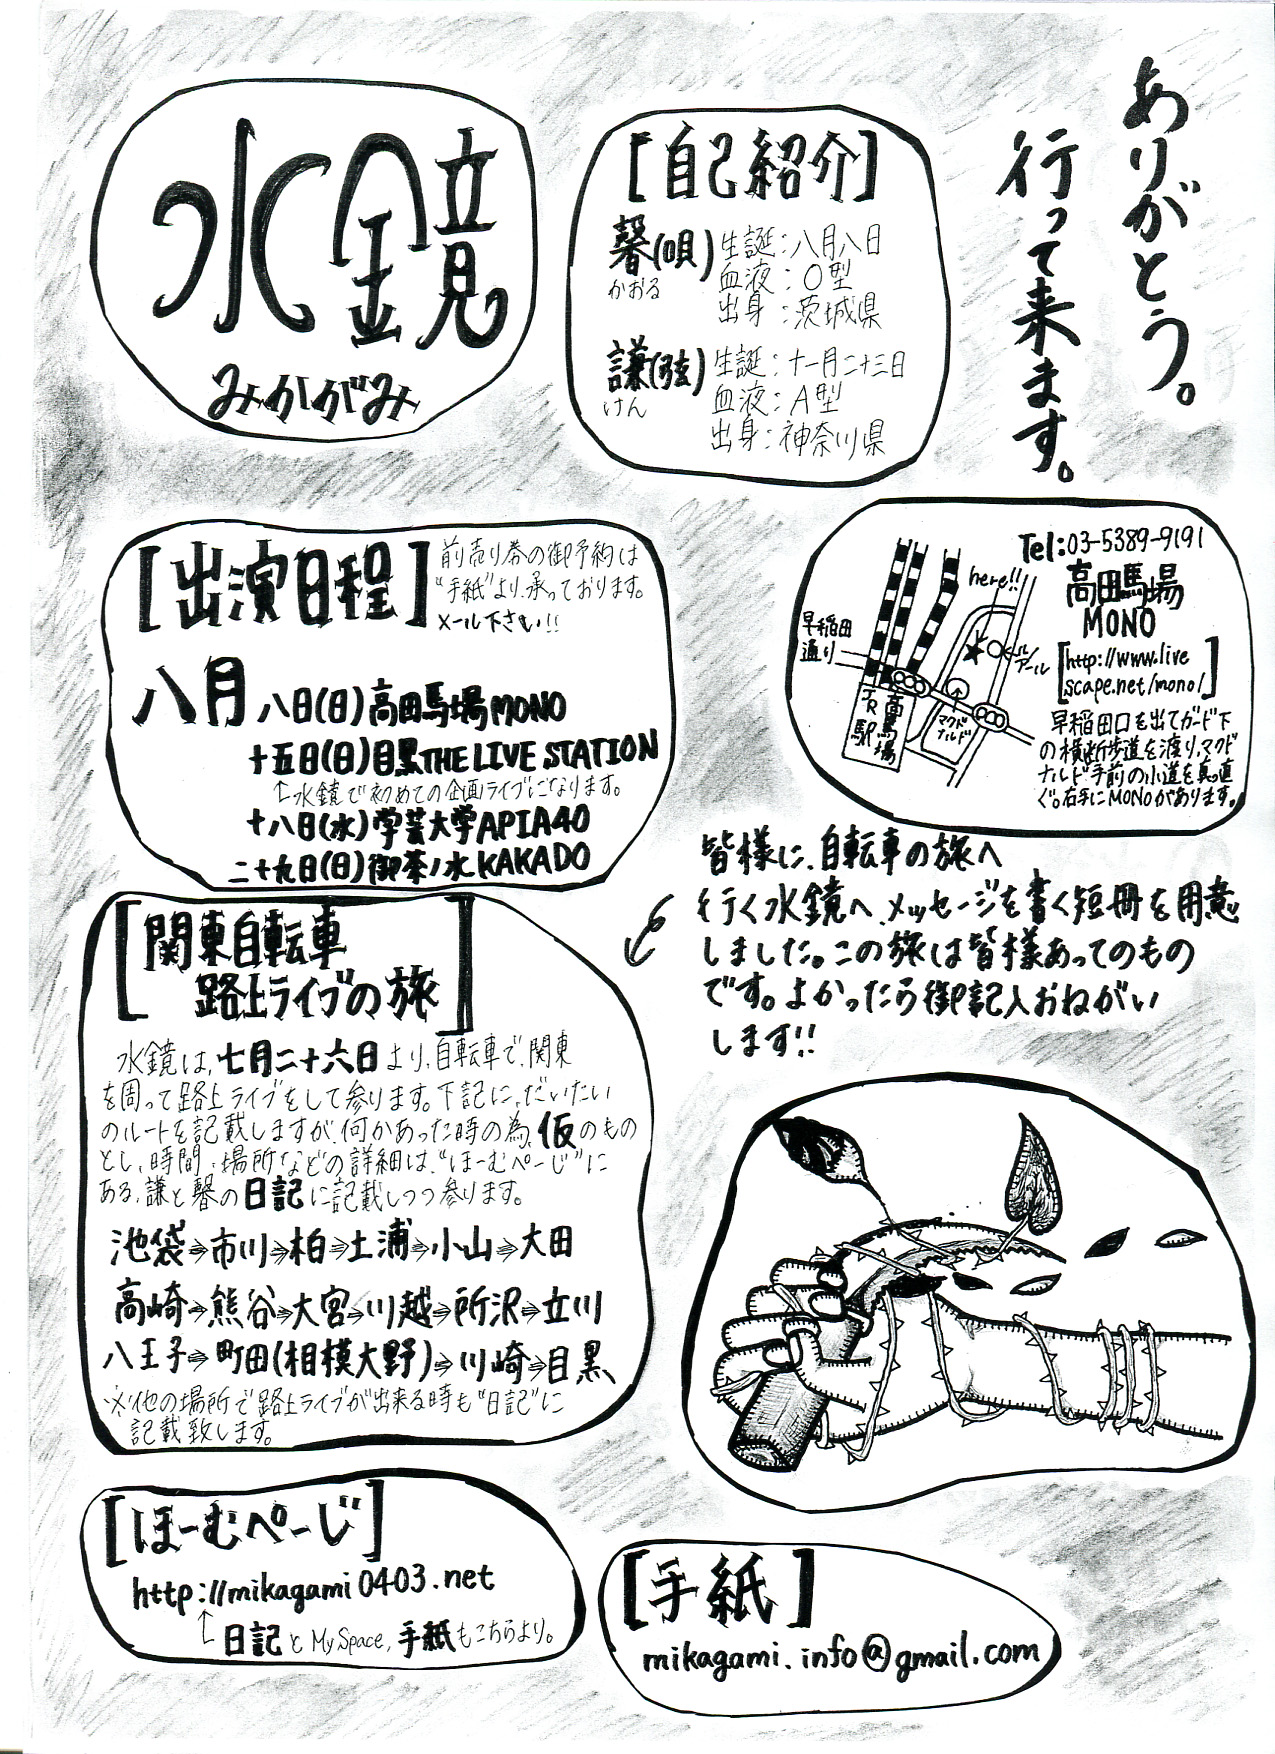 水鏡
みかがみ
[自己紹介]
馨(唄)
かおる
生誕:八月八日
血液:O型
出身:茨城県
謙(弦)
けん
生誕:十一月二十三日
血液:A型
出身:神奈川県
ありがとう。
行って来ます。
[出演日程]
前売り券の御予約は
“手紙”より、承っております。
メール下さい!!
八月
八日(日)高田馬場MONO
十五日(日)目黒THE LIVE STATION
↑水鏡で初めての企画ライブになります。
十八日(水)学芸大学APIA40
二十九日(日)御茶ノ水KAKADO
Tel:03-5389-9191
高田馬場
MONO
[http://www.live
scape.net/mono/]
here!!
早稲田
通り
JR
高田馬場
駅
マクド
ナルド
早稲田口を出てガード下
の横断歩道を渡り、マクド
ナルド手前の小道を真っ直
ぐ。右手にMONOがあります。
皆様に、自転車の旅へ
行く水鏡へ、メッセージを書く短冊を用意
しました。この旅は皆様あってのもの
です。よかったら御記入おねがい
します!!
[関東自転車
路上ライブの旅]
水鏡は、七月二十六日より、自転車で、関東
を周って路上ライブをして参ります。下記に、だいたい
のルートを記載しますが、何かあった時の為、仮のもの
とし、時間、場所などの詳細は、“ほーむぺーじ”に
ある、謙と馨の日記に記載しつつ参ります。
池袋⇒市川⇒柏⇒土浦⇒小山⇒大田
高崎⇒熊谷⇒大宮⇒川越⇒所沢⇒立川
八王子⇒町田(相模大野)⇒川崎⇒目黒
※他の場所で路上ライブが出来る時も“日記”に
記載致します。
[ほーむぺーじ]
http://mikagami0403.net
↑日記とMySpace,手紙もこちらより。
[手紙]
mikagami.info@gmail.com